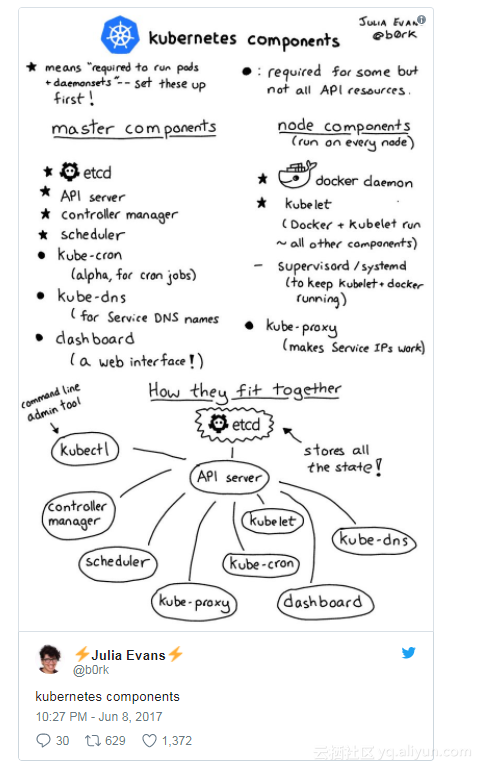 kubernetes components
JULIA EVANS
@b0rk
★ means "required to run pods
+ daemonsets" -- set these up
first!
● : required for some but
not all API resources.
master components
★ etcd
★ API server
★ controller manager
★ scheduler
● kube-cron
(alpha, for cron jobs)
● kube-dns
(for Service DNS names
● dashboard
(a web interface!)
node components
(run on every node)
★ docker daemon
★ kubelet
(Docker + Kubelet run
~ all other components)
- supervisord/systemd
(to keep kubelet + docker
running)
● kube-proxy
(makes Service IPs work)
How they fit together
command line
admin tool
etcd
stores all
the state!
kubectl
API server
controller
manager
kubelet
kube-dns
scheduler
kube-cron
kube-proxy
dashboard
⚡Julia Evans⚡
@b0rk
kubernetes components
10:27 PM - Jun 8, 2017
30 629 1,372
云栖社区 yq.aliyun.com